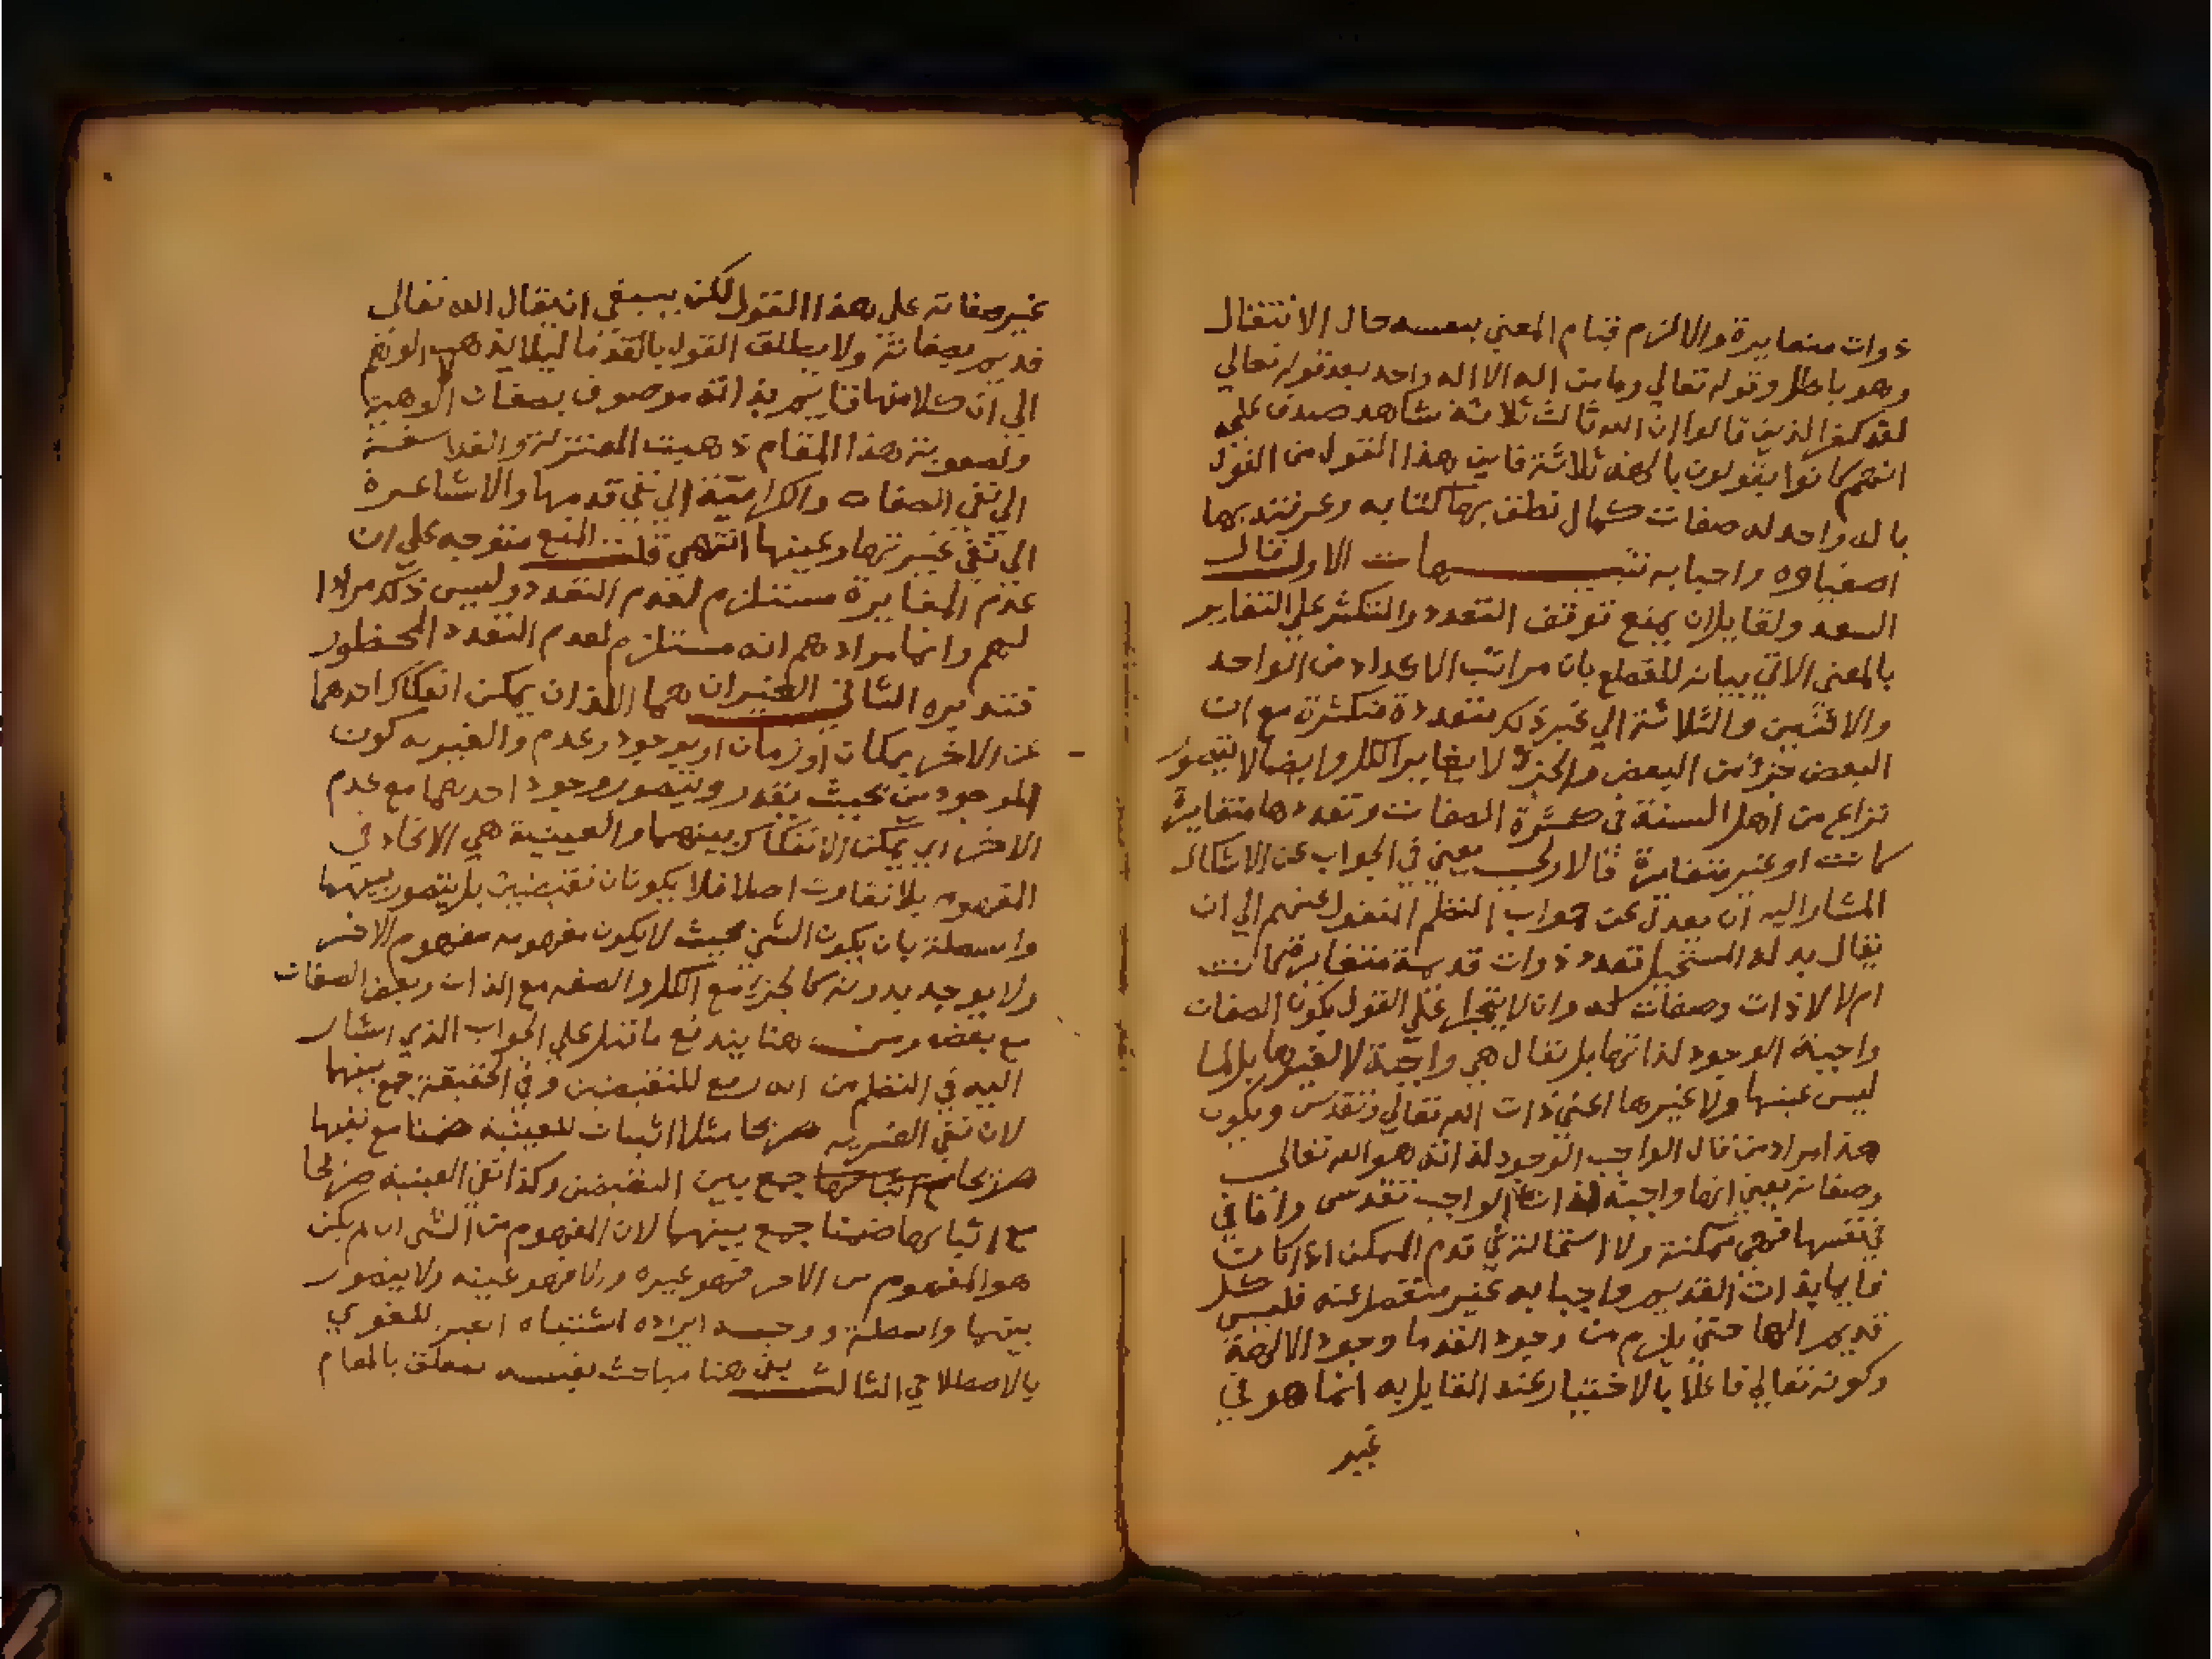 ذوات متغايرة والا لزم قيام المعني بنفسه حال الانتقال
وهو باطل وقوله تعالي وما من اله الا اله واحد بعد قوله تعالي
لقد كفر الذين قالوا ان الله ثالث ثلاثة شاهد صدق علي
انهم كانوا يقولون بالهة ثلاثة فاين هذا القول من القول
باله واحد له صفات كمال نطق بها كتابه وعرفتنا بها
اصفياوه واحبابه تنبيهات الاول قال
السعد ولقايل ان يمنع توقف التعدد والتكثر علي التغاير
بالمعني الاتي بيانه للقطع بان مراتب الاعداد من الواحد
والاثنين والثلاثة الي غير ذلك متعددة متكثرة مع ان
البعض جزء من البعض والجزء لا يغاير الكل وايضا لا يتصور
نزاع من اهل السنة في كثرة الصفات وتعددها متغايرة
كانت او غير متغايرة فالاولي يعني في الجواب عن الاشكال
المشار اليه ان يعدل عن جواب النظم المنقول عنهم الي ان
يقال بدله المستحيل تعدد ذوات قديمة متغايرة كانت
ام لا لا ذات وصفات له وان لا يتجرا علي القول بكون الصفات
واجبة الوجود لذاتها بل يقال هي واجبة لا لغيرها بل لما
ليس عينها ولا غيرها اعني ذات الله تعالي وتقدس ويكون
هذا مراد من قال الواجب الوجود لذاته هو الله تعالي
وصفاته يعني انها واجبة لذات الواجب تقدس واما في
في نفسها فهي ممكنة ولا استحالة في قدم الممكن اذا كان
قايما بذات القديم واجبا به غير منفصل عنه فليس كل
قديم الها حتي يلزم من وجود القدما وجود الالهة
وكونه تعالي فاعلا بالاختيار عند القايل به انما هو في
غير
غير صفاته علي هذا القول لكن ينبغي ان يقال الله تعالي
قديم بصفاته ولا يطلق القول بالقدما ليلا يذهب الوهم
الي ان كلا منها قايم بذاته موصوف بصفات الوهية
ولصعوبة هذا المقام ذهبت المعتزلة والفلاسفة
الي نفي الصفات والكرامية الي نفي قدمها والاشاعرة
الي نفي غيريتها وعينها انتهي قلت المنع متوجه علي ان
عدم المغايرة مستلزم لعدم التعدد وليس ذلك مرادا
لهم وانما مرادهم انه مستلزم لعدم التعدد المحظور
فتدبره الثاني الغيران هما اللذان يمكن انفكاك احدهما
عن الاخر بمكان او زمان او بوجود وعدم والغيرية كون
الموجودين بحيث يقدر ويتصور وجود احدهما مع عدم
الاخر اي يمكن الانفكاك بينهما والعينية هي الاتحاد في
المفهوم بلا تفاوت اصلا فلا يكونان نقيضين بل يتصور بينهما
واسطة بان يكون الشي بحيث لا يكون مفهومه مفهوم الاخر
ولا يوجد بدونه كالجزء مع الكل والصفه مع الذات وبعض الصفات
مع بعضه ومن هنا يندفع ما قيل علي الجواب الذي اشار
اليه في النظم من انه رفع للنقيضين وفي الحقيقة جمع بينهما
لان نفي الغيريه صريحا مثلا اثبات للعينية ضمنا مع نفيها
صريحا مع اثباتها جمع بين النقيضين وكذا نفي العينية صريحا
مع اثباتها ضمنا جمع بينهما لان المفهوم من الشي ان لم يكن
هو المفهوم من الاخر فهو غيره والا فهو عينه ولا يتصور
بينهما واسطة ووجه ايراده اشتباه الغير اللغوي
بالاصطلاحي الثالث بقي هنا مباحث نفيسه تتعلق بالمقام